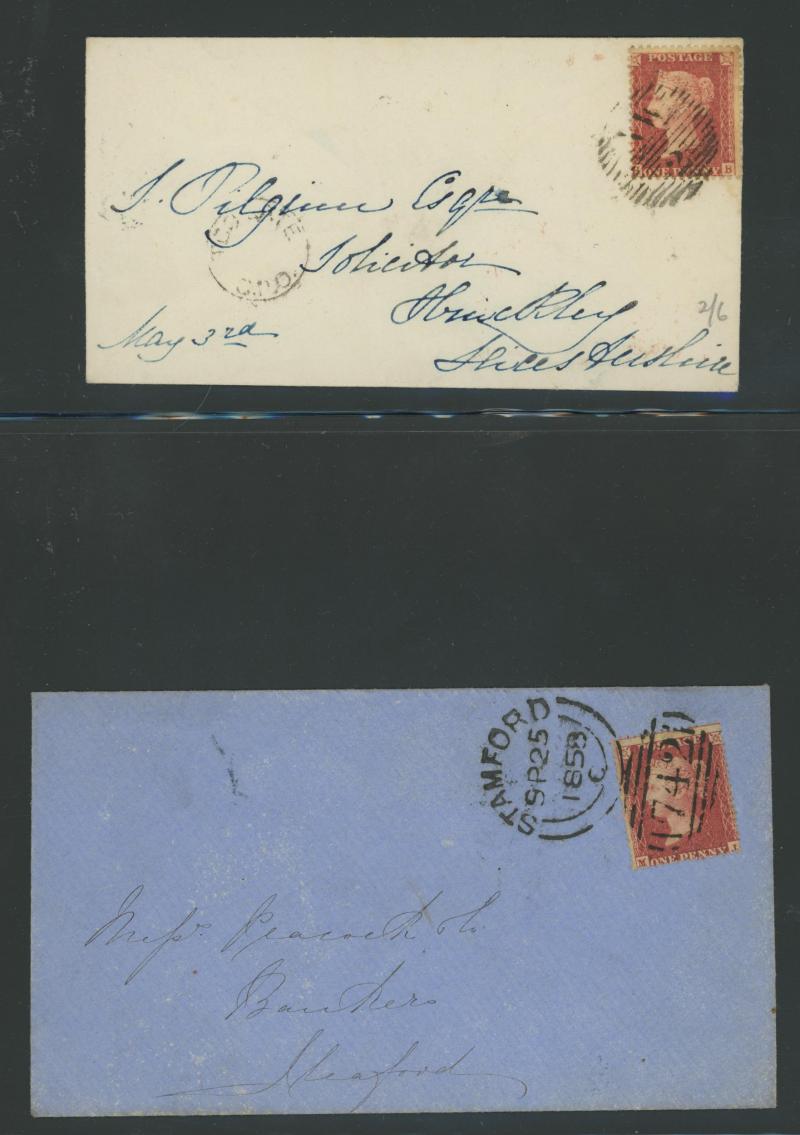 POSTAGE
B
ONE PENNY
S. Pilgrim Esqre
Solicitor
Hinckley
Leicestershire
May 3rd
2/6
STAMFORD
SP25
1858
C
742
M ONE PENNY J
Messrs. Peacock & Co.
Bankers
Sleaford